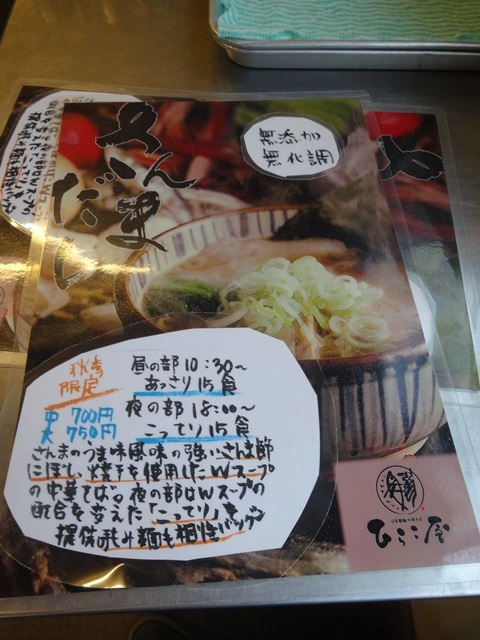 さんま
だし
無添加
無化調
秋季
限定
昼の部 10:30〜
あっさり 15食
中 700円
大 750円
夜の部 18:00〜
こってり 15食
さんまのうま味風味の強いさんま節
にぼし、焼干を使用したWスープ
の中華そば。夜の部はWスープの
配合を変えた「こってり」を
提供 麺も相性バツグン
ひらこ屋